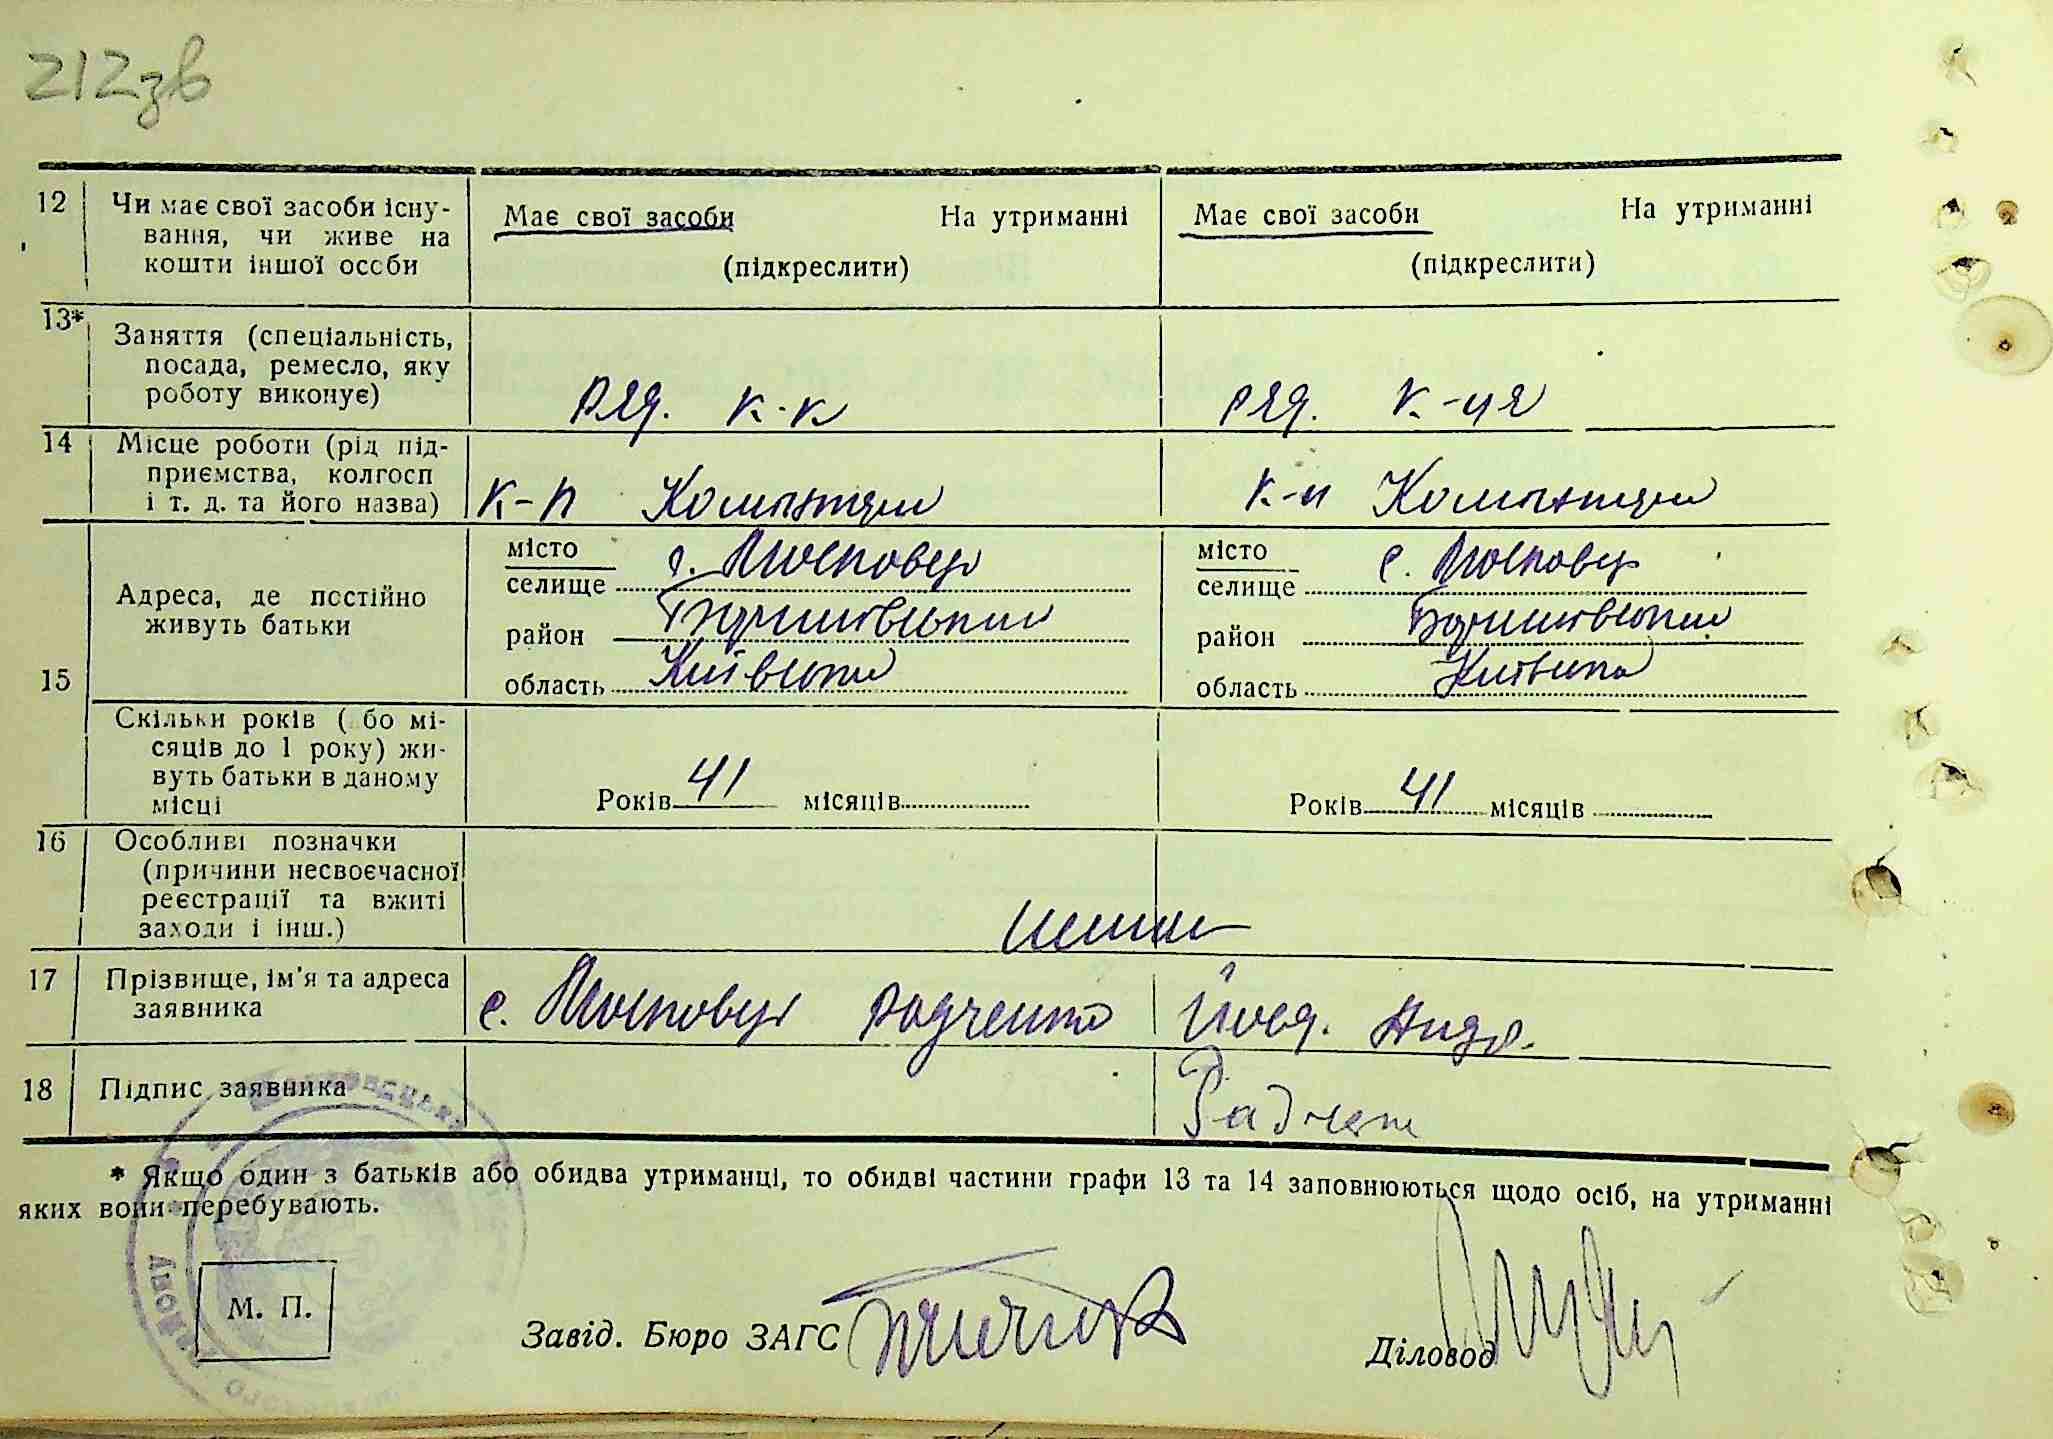 212зв
12 Чи має свої засоби існу- Має свої засоби На утриманні Має свої засоби На утриманні
вання, чи живе на
кошти іншої особи (підкреслити) (підкреслити)
13* Заняття (спеціальність,
посада, ремесло, яку
роботу виконує) ряд. к-к ряд. к-ця
14 Місце роботи (рід під-
приємства, колгосп
і т. д. та його назва) К-п Комінтерн К-п Комінтерн
15 Адреса, де постійно
живуть батьки
місто с. Московці місто с. Московці
селище селище
район район
область Київська область Київська
Скільки років (бо мі-
сяців до 1 року) жи-
вуть батьки в даному
місці Років 41 місяців Років 41 місяців
16 Особливі позначки
(причини несвоєчасної
реєстрації та вжиті
заходи і інш.)
17 Прізвище, ім'я та адреса
заявника с. Московці Радченко
18 Підпис заявника
* Якщо один з батьків або обидва утриманці, то обидві частини графи 13 та 14 заповнюються щодо осіб, на утриманні
яких вони перебувають.
М. П.
Завід. Бюро ЗАГС Діловод